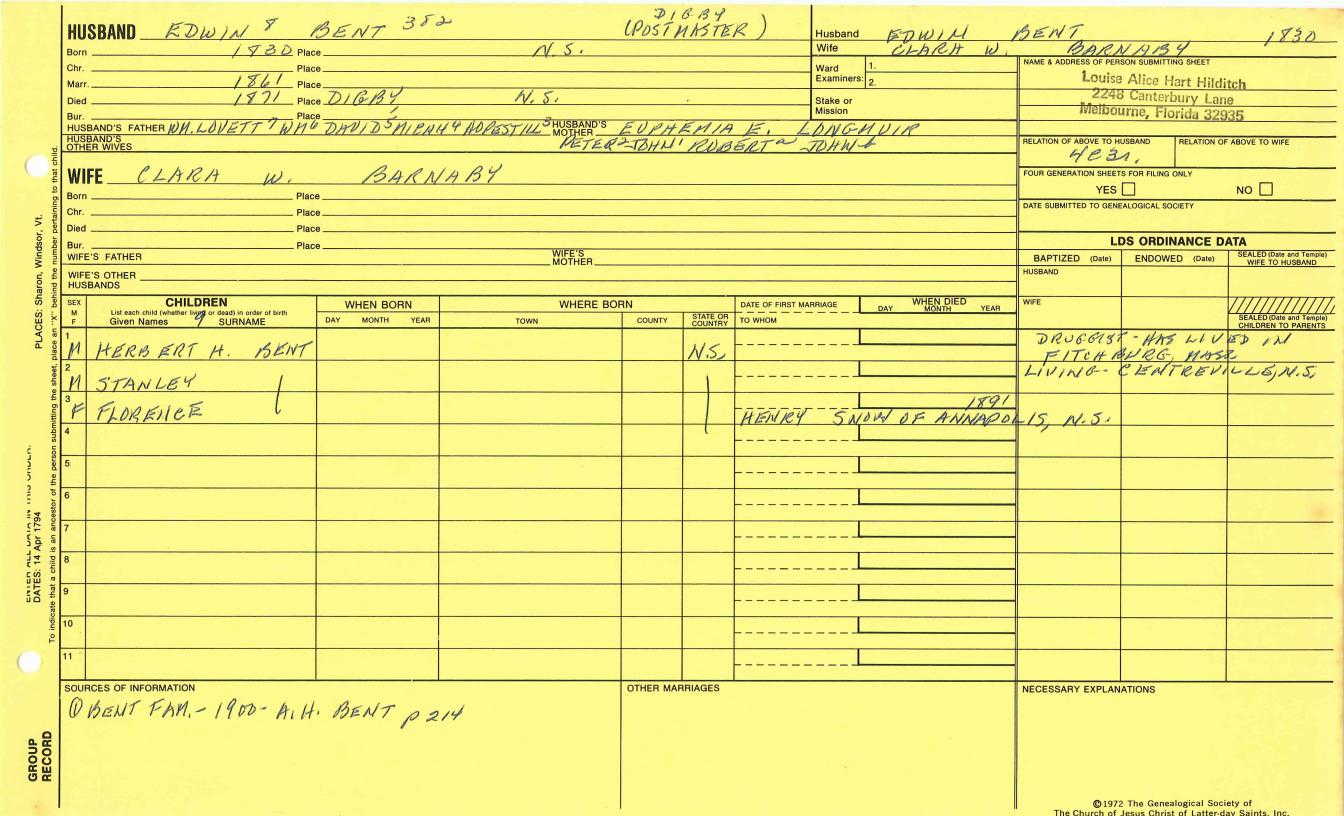 HUSBAND EDWIN 8 BENT 382 DIGBY (POSTMASTER)
Husband EDWIN BENT 1830
Wife CLARA W. BARNABY
Born 1830 Place N.S.
Chr. Place
Marr. 1861 Place
Died 1871 Place DIGBY, N.S.
Bur. Place
Ward Examiners: 1. 2.
Stake or Mission
NAME & ADDRESS OF PERSON SUBMITTING SHEET
Louise Alice Hart Hilditch
2248 Canterbury Lane
Melbourne, Florida 32935
HUSBAND'S FATHER WM. LOVETT 7 WM 6 DAVID 5 MICAH 4 HOPESTILL 3 HUSBAND'S MOTHER EUPHEMIA E. LONGMUIR
HUSBAND'S OTHER WIVES PETER 2 JOHN 1 ROBERT a JOHN b
RELATION OF ABOVE TO HUSBAND 4C3r.
RELATION OF ABOVE TO WIFE
WIFE CLARA W. BARNABY
Born Place
Chr. Place
Died Place
Bur. Place
WIFE'S FATHER WIFE'S MOTHER
WIFE'S OTHER HUSBANDS
FOUR GENERATION SHEETS FOR FILING ONLY
YES NO
DATE SUBMITTED TO GENEALOGICAL SOCIETY
LDS ORDINANCE DATA
BAPTIZED (Date) ENDOWED (Date) SEALED (Date and Temple) WIFE TO HUSBAND
HUSBAND
WIFE
SEALED (Date and Temple) CHILDREN TO PARENTS
SEX M F
CHILDREN
List each child (whether living or dead) in order of birth
Given Names 9 SURNAME
WHEN BORN DAY MONTH YEAR
WHERE BORN TOWN COUNTY STATE OR COUNTRY
DATE OF FIRST MARRIAGE TO WHOM
WHEN DIED DAY MONTH YEAR
1 M HERBERT H. BENT N.S. DRUGGIST - HAS LIVED IN FITCHBURG, MASS
2 M STANLEY LIVING - CENTREVILLE, N.S.
3 F FLORENCE 1891 HENRY SNOW OF ANNAPOLIS, N.S.
4
5
6
7
8
9
10
11
SOURCES OF INFORMATION
① BENT FAM. - 1900 - A.H. BENT p 214
OTHER MARRIAGES
NECESSARY EXPLANATIONS
©1972 The Genealogical Society of
The Church of Jesus Christ of Latter-day Saints, Inc.
PLACES: Sharon, Windsor, Vt.
ENTER ALL DATA IN THIS ORDER:
DATES: 14 Apr 1794
To indicate that a child is an ancestor of the person submitting the sheet, place an "X" behind the number pertaining to that child.
GROUP RECORD